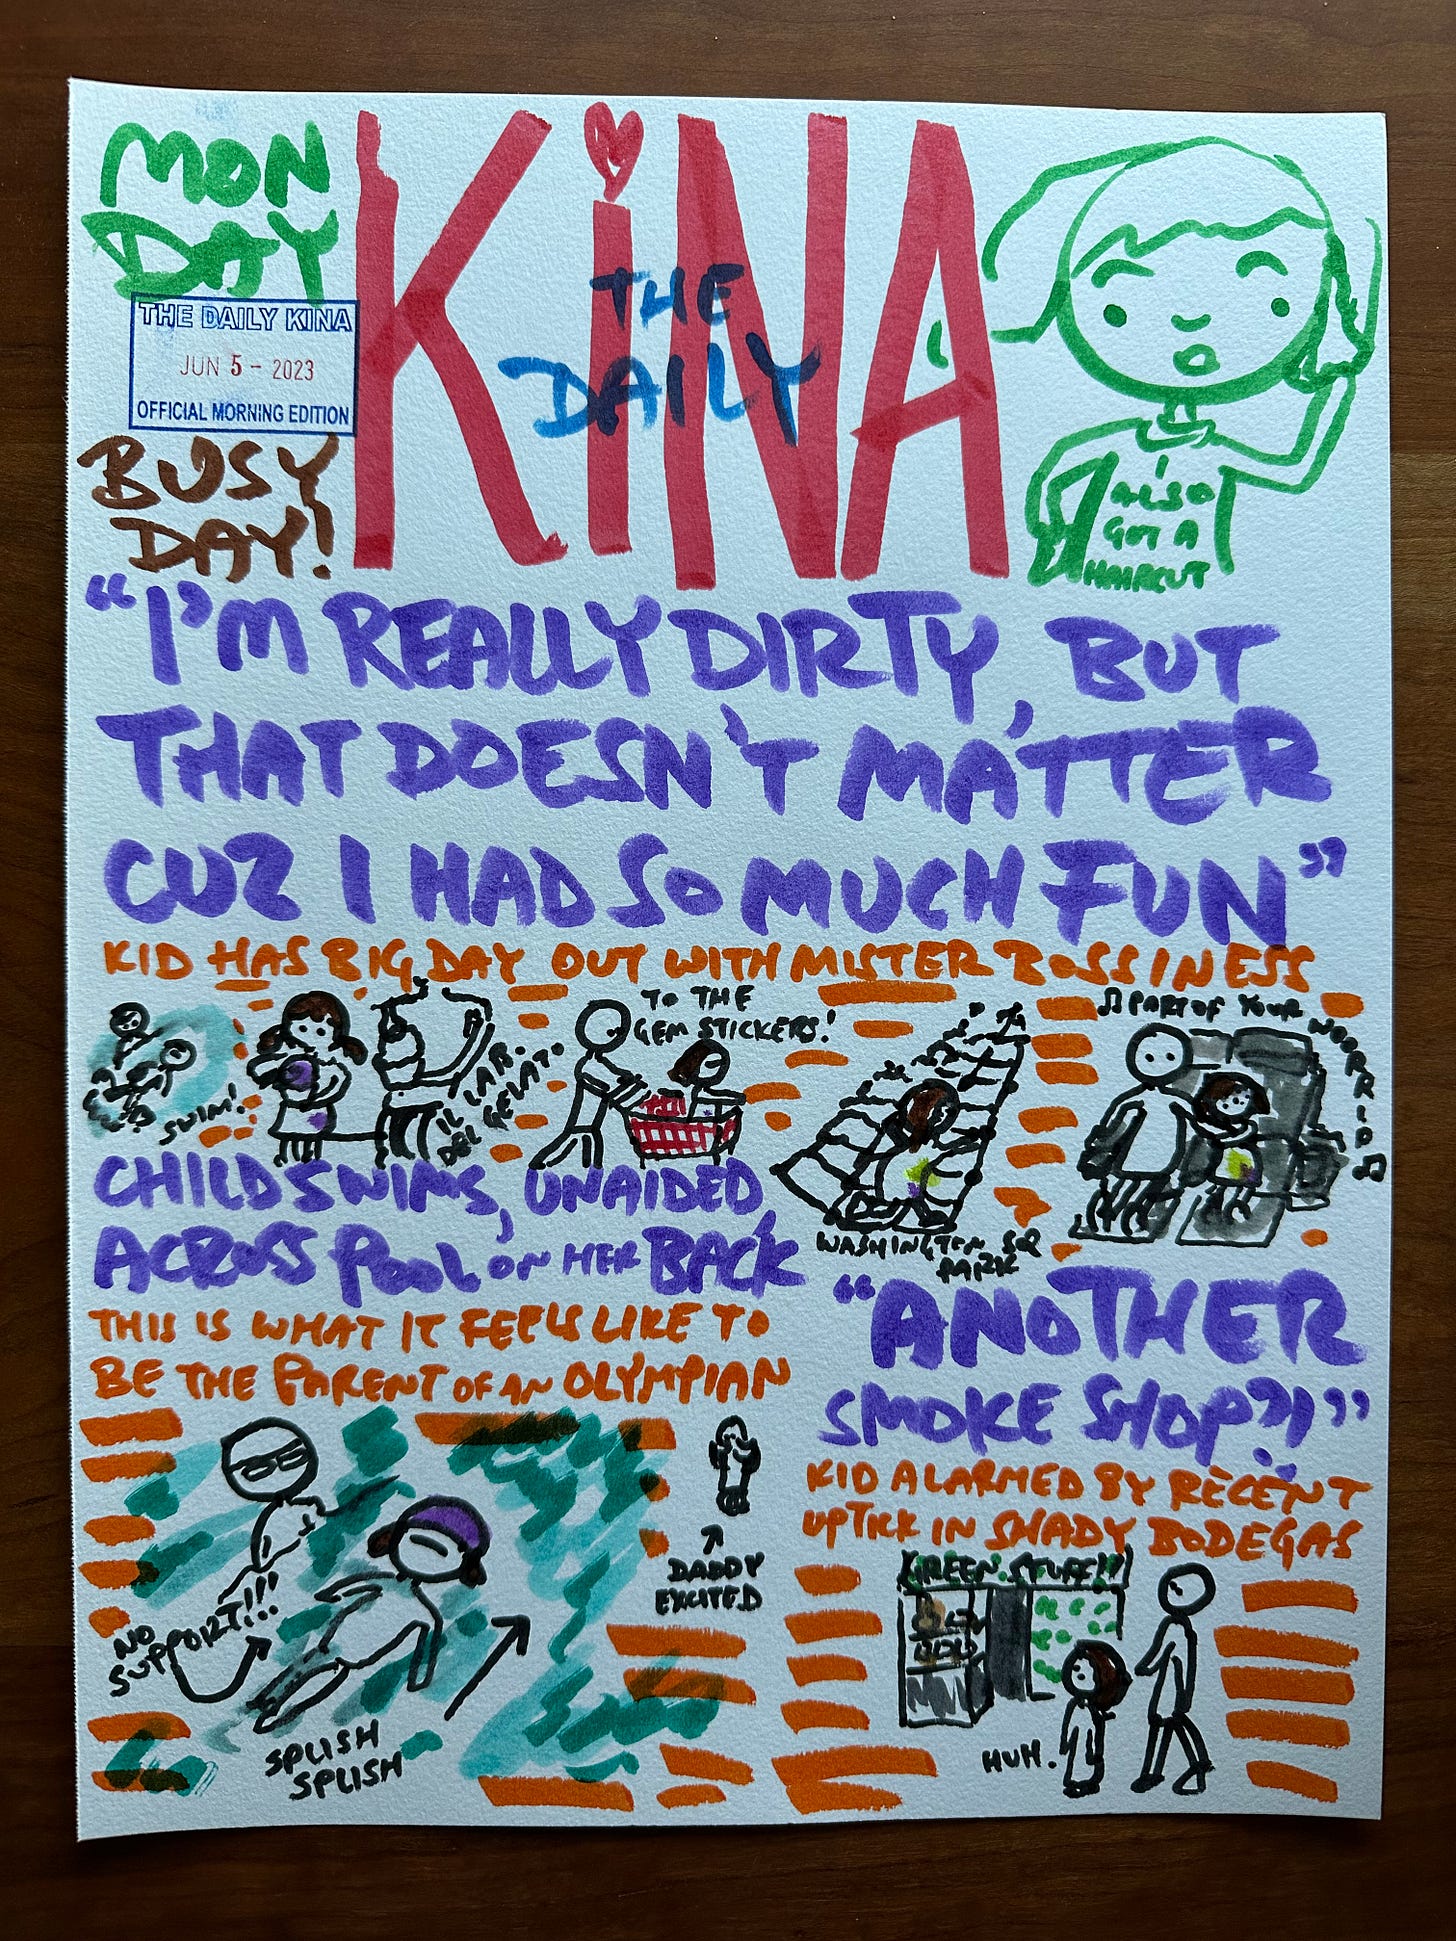 MON
DAY
THE DAILY KINA
JUN 5 - 2023
OFFICIAL MORNING EDITION
BUSY
DAY!
KiNA
THE
DAILY
I
ALSO
GOT A
HAIRCUT
"I'M REALLY DIRTY, BUT
THAT DOESN'T MATTER
CUZ I HAD SO MUCH FUN"
KID HAS BIG DAY OUT WITH MISTER BOSSINESS
SWIM!
IL LAB.
DEL GELATO
TO THE
GEM STICKERS!
WASHINGTON SQ
PARK
♫ PART OF YOUR WOORRLD ♫
CHILD SWIMS, UNAIDED,
ACROSS POOL ON HER BACK
THIS IS WHAT IT FEELS LIKE TO
BE THE PARENT OF AN OLYMPIAN
NO
SUPPORT!!!
SPLISH
SPLISH
DADDY
EXCITED
"ANOTHER
SMOKE SHOP?!"
KID ALARMED BY RECENT
UPTICK IN SHADY BODEGAS
GREEN STUFF!!
HUH.